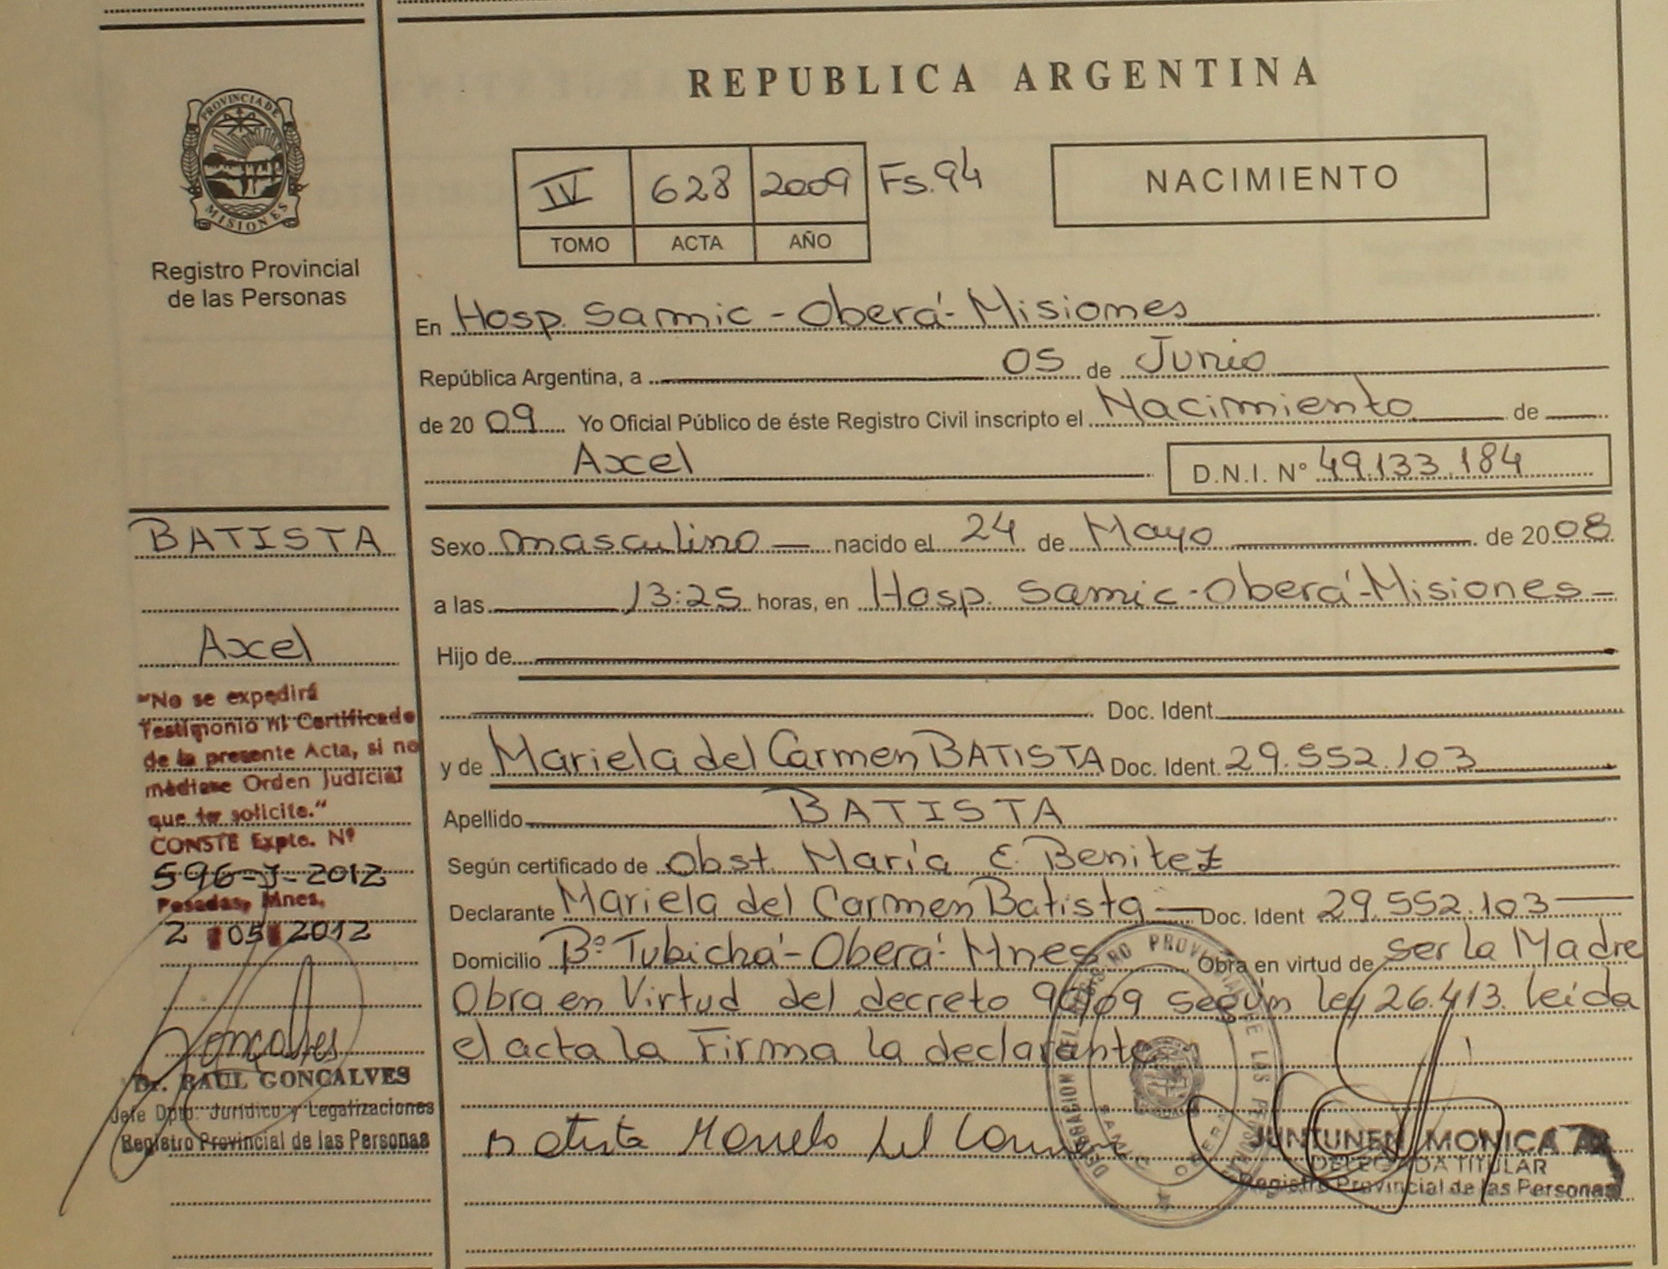 REPUBLICA ARGENTINA
PROVINCIA DE
MISIONES
Registro Provincial
de las Personas
IV 628 2009 Fs. 94
TOMO ACTA AÑO
NACIMIENTO
En Hosp. Samic - Oberá - Misiones
República Argentina, a 05 de Junio
de 2009 Yo Oficial Público de éste Registro Civil inscripto el Nacimiento de
Axel D.N.I. N° 49.133.184
BATISTA
Axel
"No se expedirá
Testimonio ni Certificado
de la presente Acta, si no
mediase Orden Judicial
que lo solicite."
CONSTE Expte. Nº
596-J-2012
Posadas, Mnes,
2 05 2012
Goncalves
Dr. RAUL GONCALVES
Jefe Dpto. Jurídico y Legalizaciones
Registro Provincial de las Personas
Sexo masculino nacido el 24 de Mayo de 2008
a las 13:25 horas, en Hosp. Samic - Oberá - Misiones
Hijo de
Doc. Ident.
y de Mariela del Carmen BATISTA Doc. Ident. 29.552.103
Apellido BATISTA
Según certificado de Obst. María E. Benitez
Declarante Mariela del Carmen Batista Doc. Ident 29.552.103
Domicilio Bº Tubichá - Oberá - Mnes Obra en virtud de ser la Madre
Obra en Virtud del decreto 90/09 según ley 26.413. leida
el acta la Firma la declarante
Batista Mariela del Carmen
JUNTUNEN, MONICA
DELEGADA TITULAR
Registro Provincial de las Personas